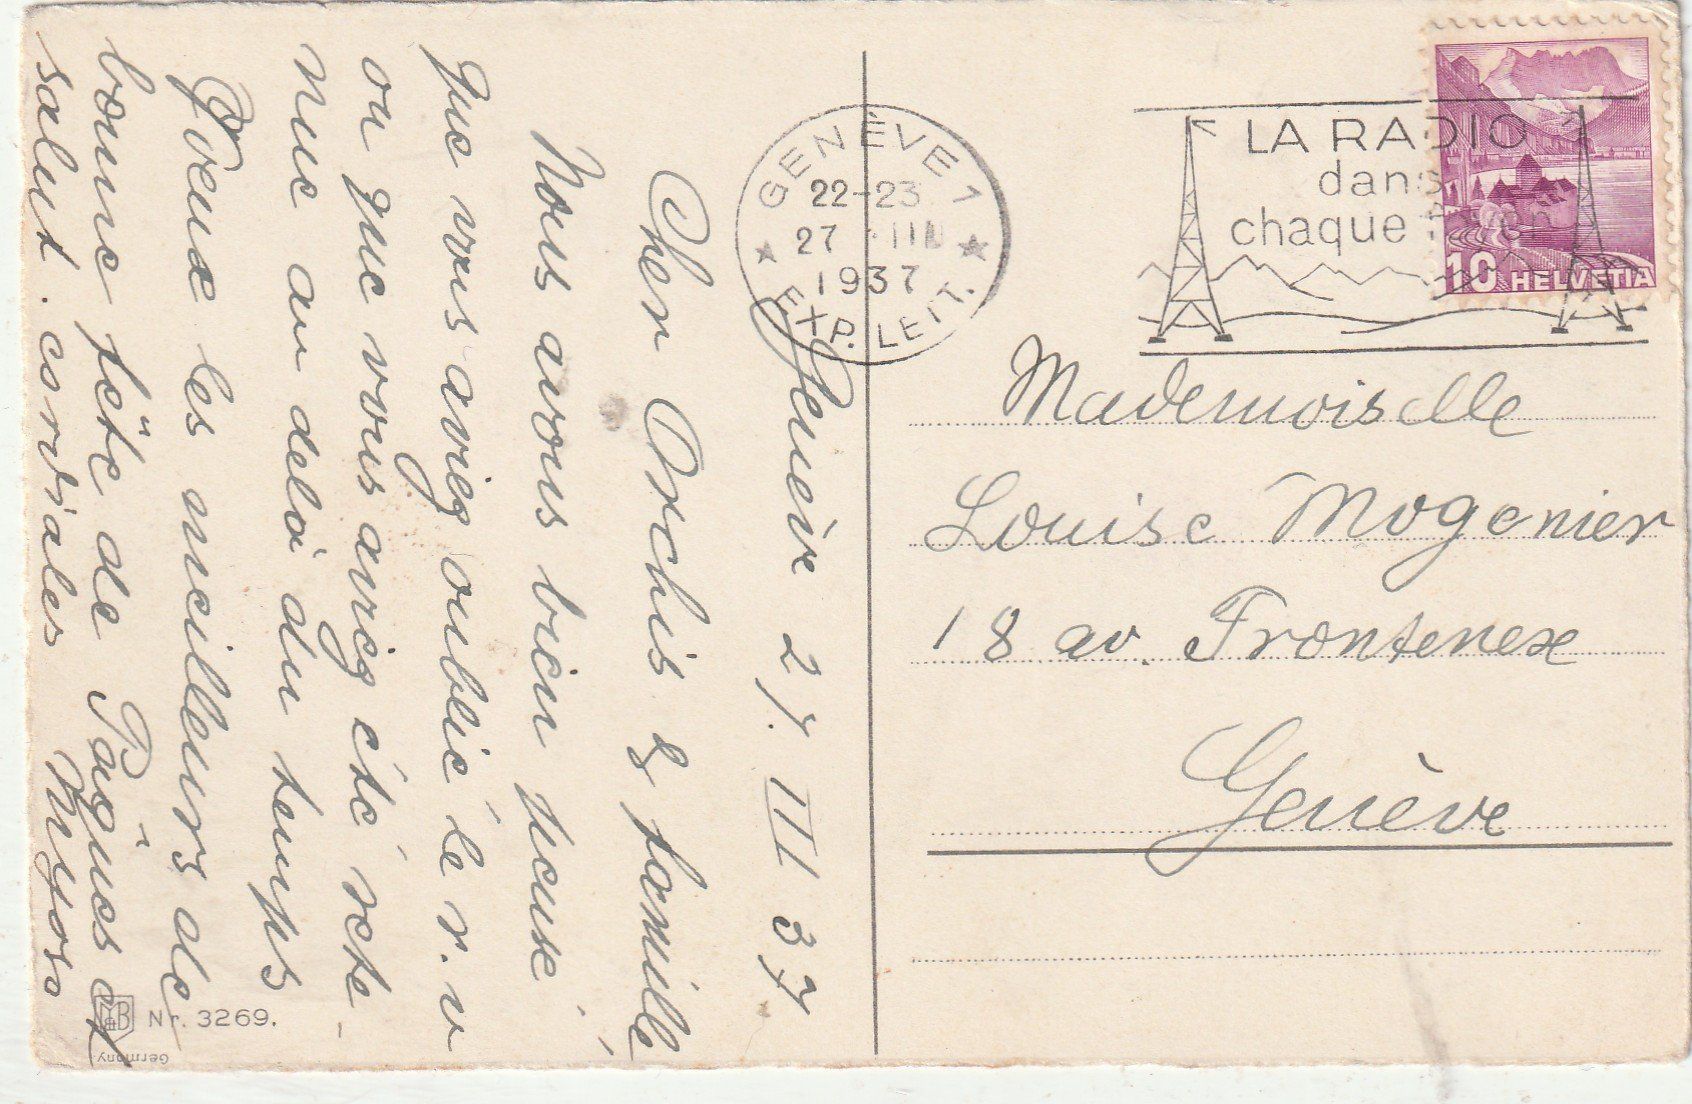 Genève 27. III 37
Cher Orchis & famille
Nous avons bien pensé
que vous aviez oublié le r. v
ou que vous aviez été rete
nue au delà du temps
Voeux les meilleurs de
bonne fête de Pâques et
salut. cordiales Myosa
GENÈVE 1
22-23
27. III
1937
EXP. LEIT.
LA RADIO
dans
chaque
10 HELVETIA
Mademoiselle
Louise Mogenier
18 av. Frontenex
Genève
M&B Nr. 3269.
Germany